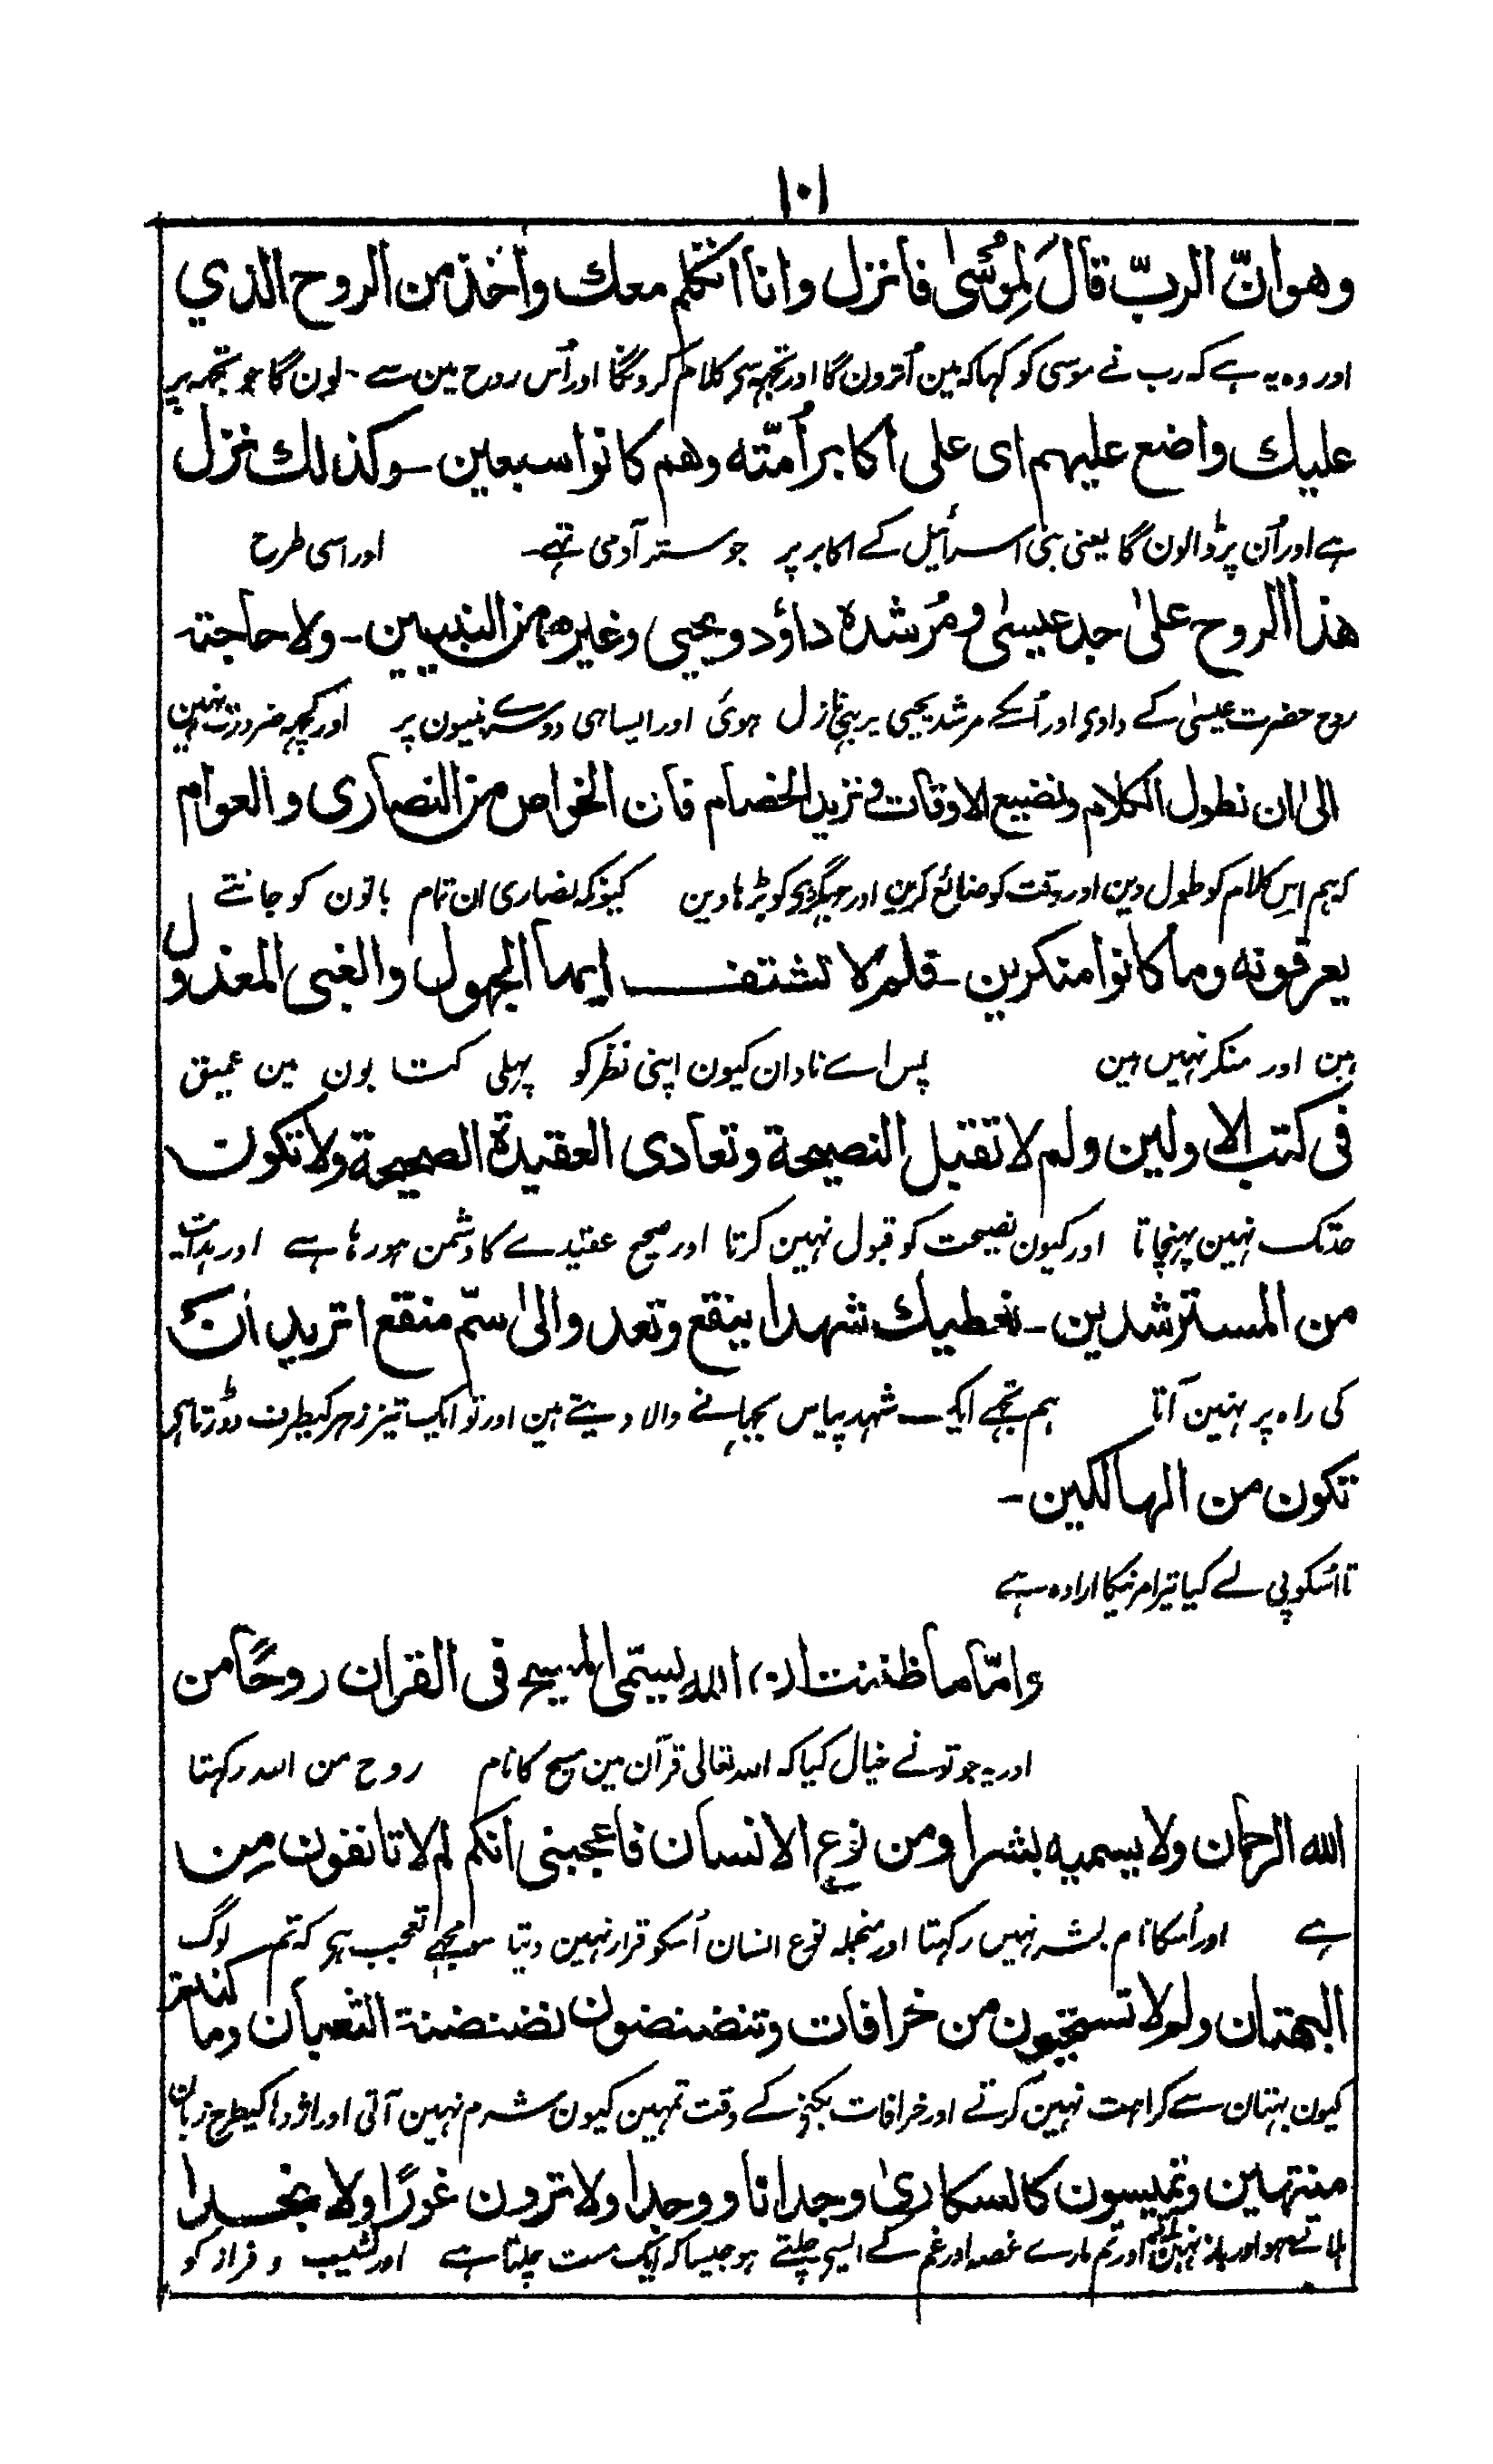 ۱۰۱
وهو انّ الربّ قالَ لِمُوْسٰى فانزل وانا اتكلم معك واٰخذ من الروح الذي
اور وہ یہ ہے کہ رب نے موسی کو کہا کہ مین اُترون گا اور تجہہ سی کلام کرونگا اور اُس روح مین سے ۔ لون گا جو تجہہ پر
عليك واضع عليهم اى على اكابر اُمّته وهم كانوا سبعين ۔ وكذلك نزل
ہے اور اُن پر ڈالون گا یعنی بنی اسرائیل کے اکابر پر جو ستر آدمی تہے ۔ اور اسی طرح
هذا الروح علىٰ جد عيسىٰ ومُرشده داؤد ويحيى وغيرهما من النبيين ۔ ولا حاجة
روح حضرت عیسیٰ کے دادی اور اُسکے مرشد یحیی پر بہی نازل ہوئی اور ایسا ہی دوسرے نبیون پر اور کچہہ ضرورت نہین
الىٰ ان نطول الكلام ونضيع الاوقات ونزيد الخصام فان الخواص من النصارى والعوام
کہ ہم اس کلام کو طول دین اور وقت کو ضائع کرین اور جہگڑی کو بڑہا دین کیونکہ نصاری ان تمام باتون کو جانتے
يعرفونه وما كانوا منكرين ۔ فلم لا تشتف ايها الجهول والغبى المعذول
ہین اور منکر نہیں ہین پس اے نادان کیون اپنی نظر کو پہلی کتابون مین عمیق
فى كتب الاولين ولم لا تقبل النصيحة وتعادى العقيدة الصحيحة ولا تكون
حد تک نہین پہنچاتا اور کیون نصیحت کو قبول نہین کرتا اور صحیح عقیدے کا دشمن ہو رہا ہے اور ہدایت
من المسترشدين ۔ نعطيك شهدا ينقع وتعدو الىٰ سمّ منقع اتريد ان
کی راہ پر نہین آتا ہم تجہے ایک شہد پیاس بجہانے والا دیتے ہین اور تو ایک تیز زہر کیطرف دوڑتا ہی
تكون من الهالكين ۔
تا اُسکو پی لے کیا تیرا مرنیکا ارادہ ہے
وامّا ما ظننت ان الله يسمّى المسيح فى القران روحًا من
اور یہ جو تو نے خیال کیا کہ اللہ تعالی قرآن مین مسیح کا نام روح من اللہ رکہتا
الله الرحمان ولا يسميه بشرا ومن نوع الانسان فاعجبنى انكم لم لا تانفون من
ہے اور اُسکا نام بشر نہیں رکہتا اور منجملہ نوع انسان اُسکو قرار نہین دیتا سو مجہے تعجب ہی کہ تم لوگ
البهتان ولم لا تستحيون من خرافات وتنضنضون نضنضة الثعبان وما كنتم
کیون بہتان سے کراہت نہین کرتے اور خرافات بکنے کے وقت تمہین کیون شرم نہین آتی اور اژدہا کیطرح زبان
منتهين وتميسون كالسكارىٰ وجدانا ووجدا ولا ترون غورًا ولا نجدا
ہلاتے ہو اور باز نہین آتے اور تم مارے غصہ اور غم کے ایسی چلتے ہو جیسا کہ ایک مست چلتا ہے اور نشیب و فراز کو